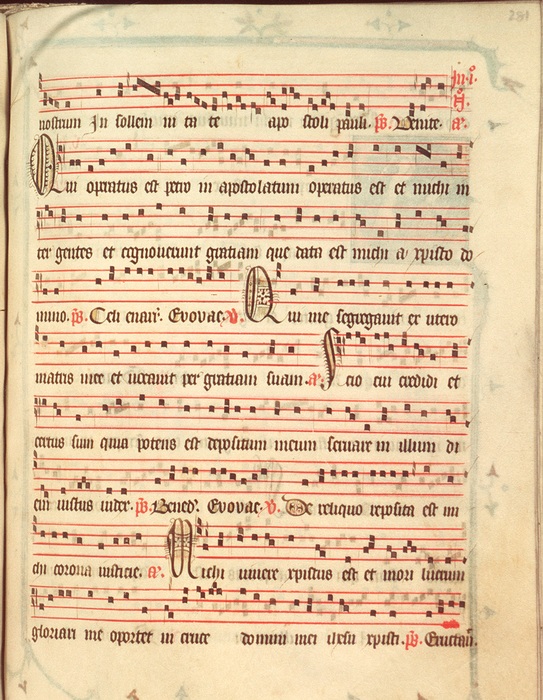 281
nostrum In sollem ni ta te apo stoli pauli. ps. Venite. a.
Qui operatus est petro in apostolatum operatus est et michi in
ter gentes et cognoverunt gratiam que data est michi a xpisto do
mino. ps. Celi enarr. Evovae. v. Qui me segregavit ex utero
matris mee et vocavit per gratiam suam. a. Scio cui credidi et
certus sum quia potens est depositum meum servare in illum di
em iustus iudex. ps. Bened. Evovae. v. De reliquo reposita est mi
chi corona iusticie. a. Michi vivere xpistus est et mori lucrum
gloriari me oportet in cruce domini mei ihesu xpisti. ps. Eructavit.